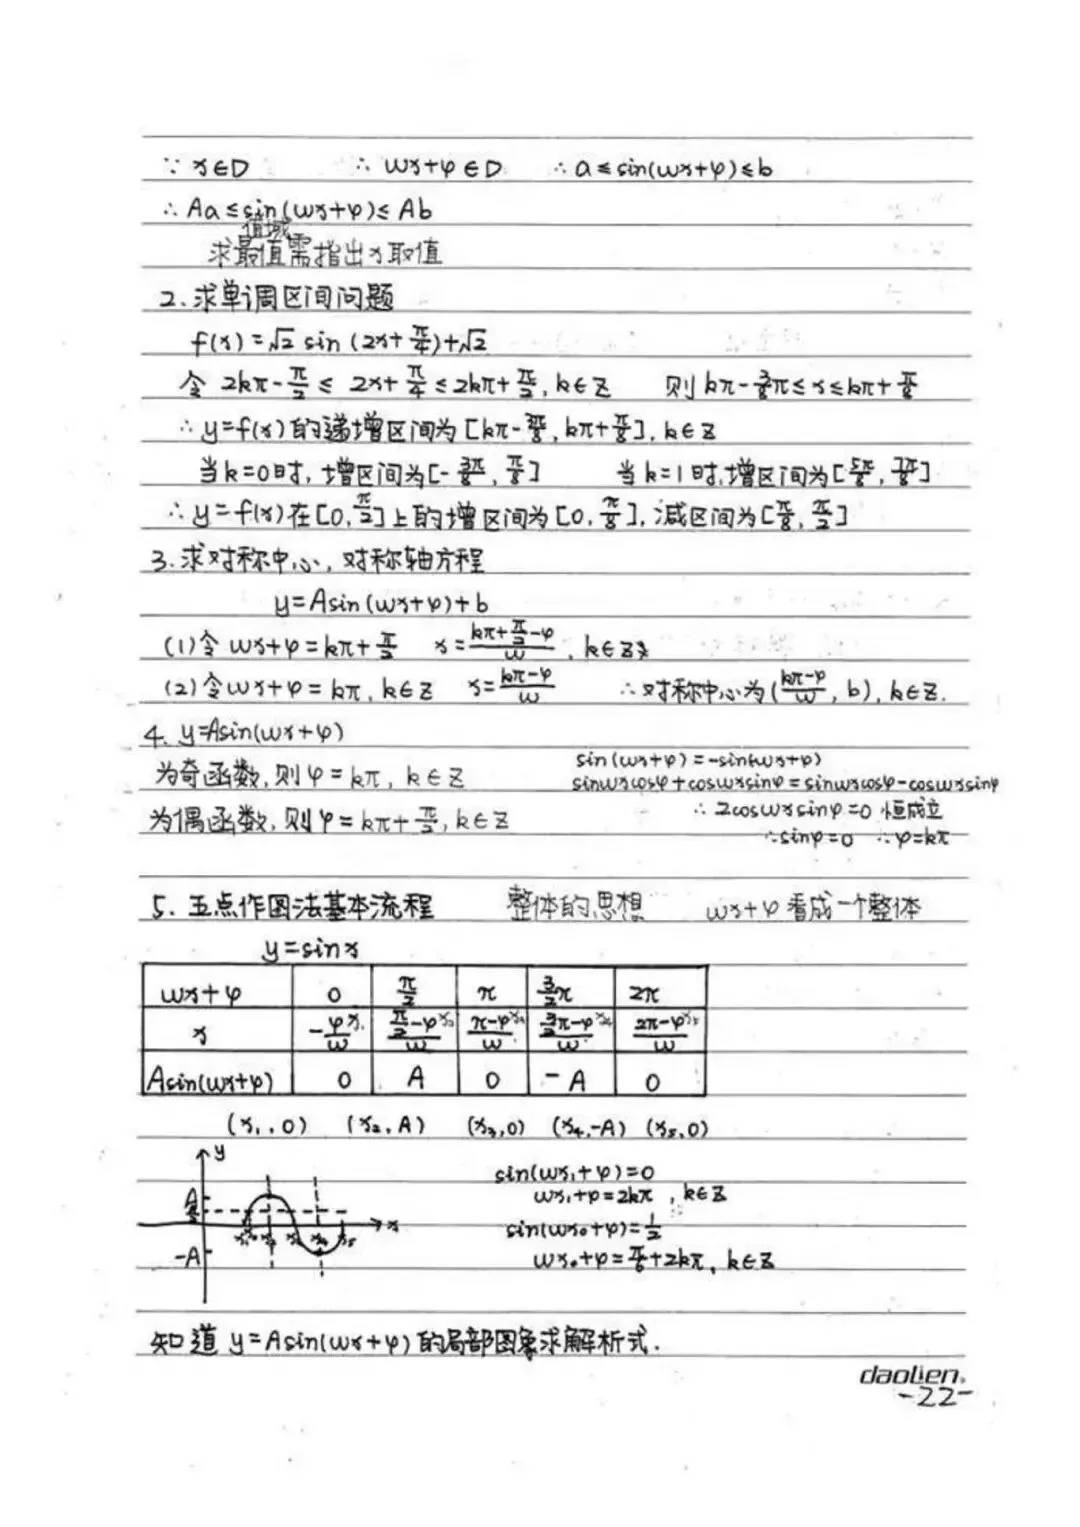 ∵ x∈D ∴ wx+φ∈D ∴ a≤sin(wx+φ)≤b
∴ Aa≤sin(wx+φ)≤Ab
值域
求最值需指出x取值
2、求单调区间问题
f(x)=√2 sin(2x+π/4)+√2
令 2kπ-π/2 ≤ 2x+π/4 ≤ 2kπ+π/2, k∈Z 则 kπ-3/8π≤x≤kπ+π/8
∴ y=f(x)的递增区间为[kπ-3π/8, kπ+π/8], k∈Z
当k=0时, 增区间为[-3π/8, π/8] 当k=1时, 增区间为[5π/8, 7π/8]
∴ y=f(x)在[0, π/2]上的增区间为[0, π/8], 减区间为[π/8, π/2]
3、求对称中心, 对称轴方程
y=Asin(wx+φ)+b
(1)令 wx+φ=kπ+π/2 x=(kπ+π/2-φ)/w, k∈Z
(2)令wx+φ=kπ, k∈Z x=(kπ-φ)/w ∴对称中心为((kπ-φ)/w, b), k∈Z.
4、y=Asin(wx+φ)
为奇函数, 则φ=kπ, k∈Z
为偶函数, 则φ=kπ+π/2, k∈Z
sin(wx+φ)=-sin(-wx+φ)
sinwxcosφ+coswxsinφ=sinwxcosφ-coswxsinφ
∴ 2coswxsinφ=0 恒成立
∴sinφ=0 ∴φ=kπ
5、五点作图法基本流程 整体的思想 wx+φ看成一个整体
y=sinx
wx+φ 0 π/2 π 3/2π 2π
x -φ/w x₁ (π/2-φ)/w x₂ (π-φ)/w x₃ (3/2π-φ)/w x₄ (2π-φ)/w x₅
Asin(wx+φ) 0 A 0 -A 0
(x₁,0) (x₂,A) (x₃,0) (x₄,-A) (x₅,0)
y
A
-A
x
sin(wx₁+φ)=0
wx₁+φ=2kπ, k∈Z
sin(wx₀+φ)=1/2
wx₀+φ=π/6+2kπ, k∈Z
知道 y=Asin(wx+φ)的局部图象求解析式.
daolien.
-22-